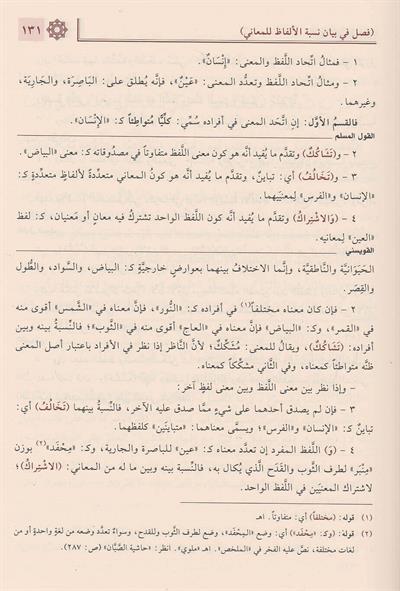 (فصل في بيان نسبة الألفاظ للمعاني) ١٣١
١ - فمثال اتّحاد اللَّفظ والمعنى: «إِنْسَانٌ».
٢ - ومثالُ اتّحاد اللَّفظ وتعدُّد المعنى: «عَيْنٌ»، فإنَّه يُطلق على: البَاصِرَة، والجَارِيَة،
وغيرهما.
فالقسمُ الأوَّل: إن اتَّحد المعنى في أفراده سُمِّي: كلِّيًّا متواطِئاً كـ: «الإنْسَان».
القول المسلم
٢ - و(تَشَاكُكٌ) وتقدَّم ما يُفيد أنَّه هو كون معنى اللَّفظ متفاوتاً في مصدُوقاته كـ: معنى «البياض».
٣ - (تَخَالُفُ) أي: تباينٌ، وتقدَّم ما يُفيد أنَّه هو كونُ المعاني متعدِّدةً لألفاظٍ متعدِّدةٍ كـ:
«الإنسان» و«الفرس» لِمعنَيَيهما.
٤ - (وَالاشْتِرَاكُ) وتقدَّم ما يُفيد أنَّه كون اللَّفظ الواحد تشترك فيه معانٍ أو مَعنيان، كـ: لفظ
«العين» لِمعانيه.
القويسني
الحَيَوَانيَّة والنَّاطقيَّة، وإنَّما الاختلافُ بينهما بعوارضٍ خارجيَّةٍ كـ: البياض، والسَّواد، والطُّول
والقِصَر.
٢ - فإن كان معناه مختلفاً(١) في أفراده كـ: «النُّور»، فإنَّ معناه في «الشَّمس» أقوى منه
في «القمر»، وكـ: «البياض» فإنَّ معناه في «العاج» أقوى منه في «الثَّوب»؛ فالنِّسبةُ بينه وبين
أفراده: (تَشَاكُكٌ)، ويقالُ للمعنى: مُشَكِّكٌ؛ لأنَّ النَّاظر إذا نظر في الأفراد باعتبار أصل المعنى
ظنَّه متواطئاً كمعناه، وفي الثَّاني مشكِّكاً كمعناه.
- وإذا نظر بين معنى اللَّفظ وبين معنى لفظٍ آخر:
٣ - فإن لم يصدق أحدهما على شيءٍ ممَّا صدق عليه الآخر، فالنِّسبةُ بينهما (تَخَالُفُ) أي:
تباينٌ كـ: «الإنسان» و«الفرس»؛ ويسمَّى معناهما: «متباينَين» كلفظهما.
٤ - (وَ) اللَّفظ المفرد إن تعدَّد معناه كـ: «عين» للباصرة والجارية، وكـ: «مِحْفَد»(٢) بوزن
«مِنْبَر» لطرف الثَّوب والقَدَح الَّذي يُكال به، فالنِّسبة بينه وبين ما له من المعاني: (الاشْتِرَاكُ)؛
لاشتراك المعنَيَين في اللَّفظ الواحد.
(١) قوله: (مختلفاً) أي: متفاوتاً. اهـ
(٢) قوله: (وكـ: «مِحْفَد») أي: وضع «المِحْفَد»، وضع لطرف الثَّوب وللقدح، وسواءٌ تعدَّد وضعه من لغةٍ واحدةٍ أو من
لغات مختلفة، نصَّ عليه الفخر في «الملخص». اهـ «ملوي». انظر: «حاشية الصَّبَّان» (ص: ٢٨٧).